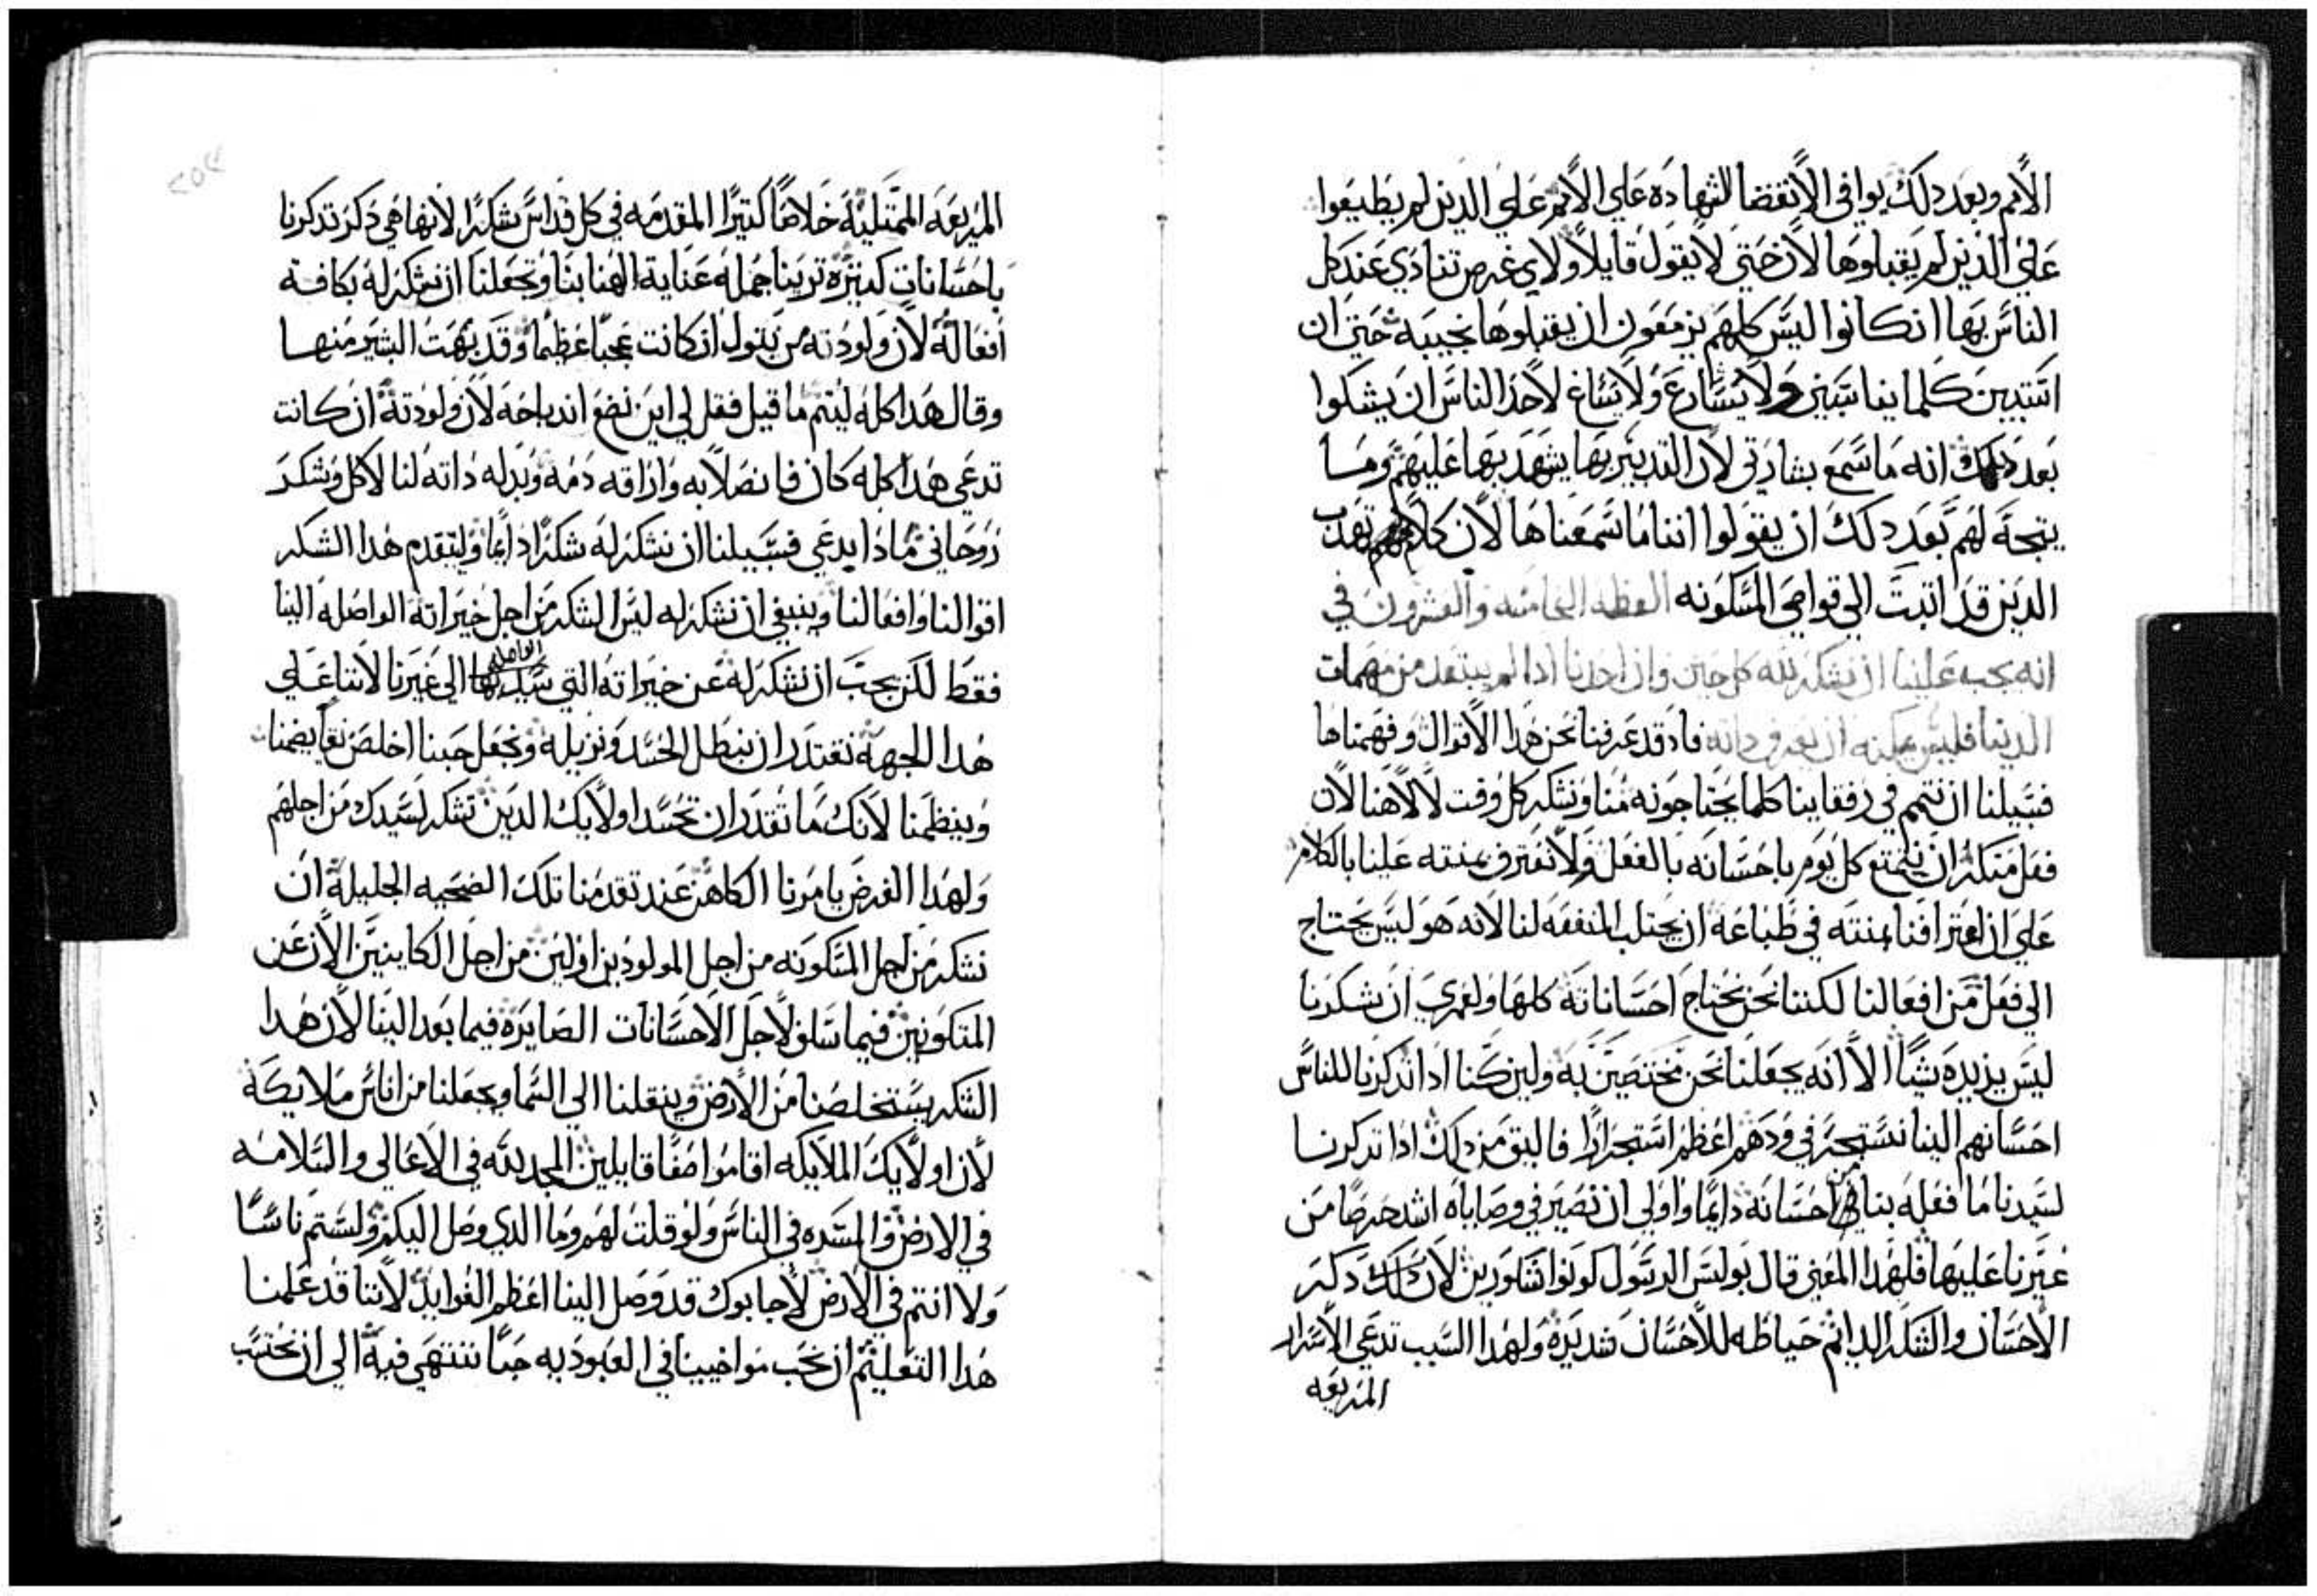 الأمم وبعد دلك يوافي الأنقضا للشهاده علي الأمم علي الدين لم يطيعوا
علي الدين لم يقبلوها لأن حتي لا يقول قايلاً ولاي غرض تنادي عند كل
الناس بها ان كانوا ليس كلهم يزمعون ان يقبلوها نجيبه حتي ان
استبين كلما يناسبني ولا يسارع ولا يساغ لأحد الناس ان يشكوا
بعد دلك انه ما سمع بشارتي لأن التدبير بها يشهد بها عليهم وما
يتجه لهم بعد دلك ان يقولوا اننا ما سمعناها لأن كلامهم تهدب
الدين قد اتبت الي قواصي المسكونه العظه الخامسه والعشرون في
انه يجب علينا ان نشكر لله كل حين وان احدنا ادا لم يبتعد من مهمات
الدنيا فليس يمكنه ان يعرف داته فاد قد عرفنا نحن هدا الأقوال وفهمناها
فسبيلنا ان نتمم في رفقاينا كلما يحتاجونه منا ونشكر كل وقت لألاهنا لأن
فعل منكر ان نتمتع كل يوم باحسانه بالفعل ولا نعترف بمنته علينا بالكلام
علي ان اعترافنا بمنته في طباعه ان يجتلب المنفعه لنا لأنه هو ليس يحتاج
الي فعل من افعالنا لكننا نحن نحتاج احساناته كلها ولعمري ان شكرنا
ليس يزيده شياً الا انه يجعلنا نحن مختصين به ولين كنا ادا تدكرنا للناس
احسانهم الينا نستجر في ودهم اعظم استجراراً فاليق من دلك ادا تدكرنا
لسيدنا ما فعله بنا من احسانه دايماً واولي ان نصير في وصاياه اشد حرصاً من
غيرنا عليها فلهدا المعني قال بولس الرسول كونوا شاكورين لأن دكر
الأحسان والشكر الدايم حياطه للأحسان شديده ولهدا السبب تدعي الأسرار
المريعه
المريعه الممتليه خلاصاً كتيراً المقدمه في كل قداس شكراً لأنها هي دكر تدكرنا
باحسانات كتيرة ترينا جملة عناية الهنا بنا وتجعلنا ان نشكر له بكافة
افعاله لأن ولودته من بتول ان كانت عجباً عظيماً وقد بهت البشير منها
وقال هدا كله ليتم ما قيل فقل لي اين نضع اندباحه لأن ولودته ان كانت
تدعي هدا كله كان فانصلابه واراقه دمه وبدله داته لنا لأكل وشكر
روحاني مادا يدعي فسبيلنا ان نشكر له شكراً دايماً وليتقدم هدا الشكر
اقوالنا وافعالنا وينبغي ان نشكر له ليس الشكر من اجل خيراته الواصله الينا
فقط لكن يجب ان نشكر له عن خيراته التي الواصله الي غيرنا لأننا علي
هدا الجهة نقتدر ان نبطل الحسد ونزيله ونجعل حبنا اخلص نقا يضمنا
وينظمنا لأنك ما تقدر ان تحسد اولأيك الدين تشكر لسيدك من اجلهم
ولهدا الغرض يامرنا الكاهن عند تقدمنا تلك الضحيه الجليلة ان
نشكر من اجل المسكونه من اجل المولودين اولين من اجل الكاينين الأن عن
المتكونين فيما سلف لأجل الأحسانات الصايرة فيما بعد الينا لأن هدا
الشكر يستخلصنا من الأرض وينقلنا الي السما ويجعلنا من اناس ملايكة
لأن اولأيك الملأيكه اقاموا صفاً قايلين المجد لله في الأعالي والسلامه
في الارض والمسره في الناس ولو قلت لهم وما الدي وصل اليكم ولستم ناساً
ولا انتم في الأرض لأجابوك قد وصل الينا اعظم الفوايد لأننا قد علمنا
هدا التعليم ان نحب مواخيينا في العبوديه حباً ننتهي فيه الي ان نحتسب